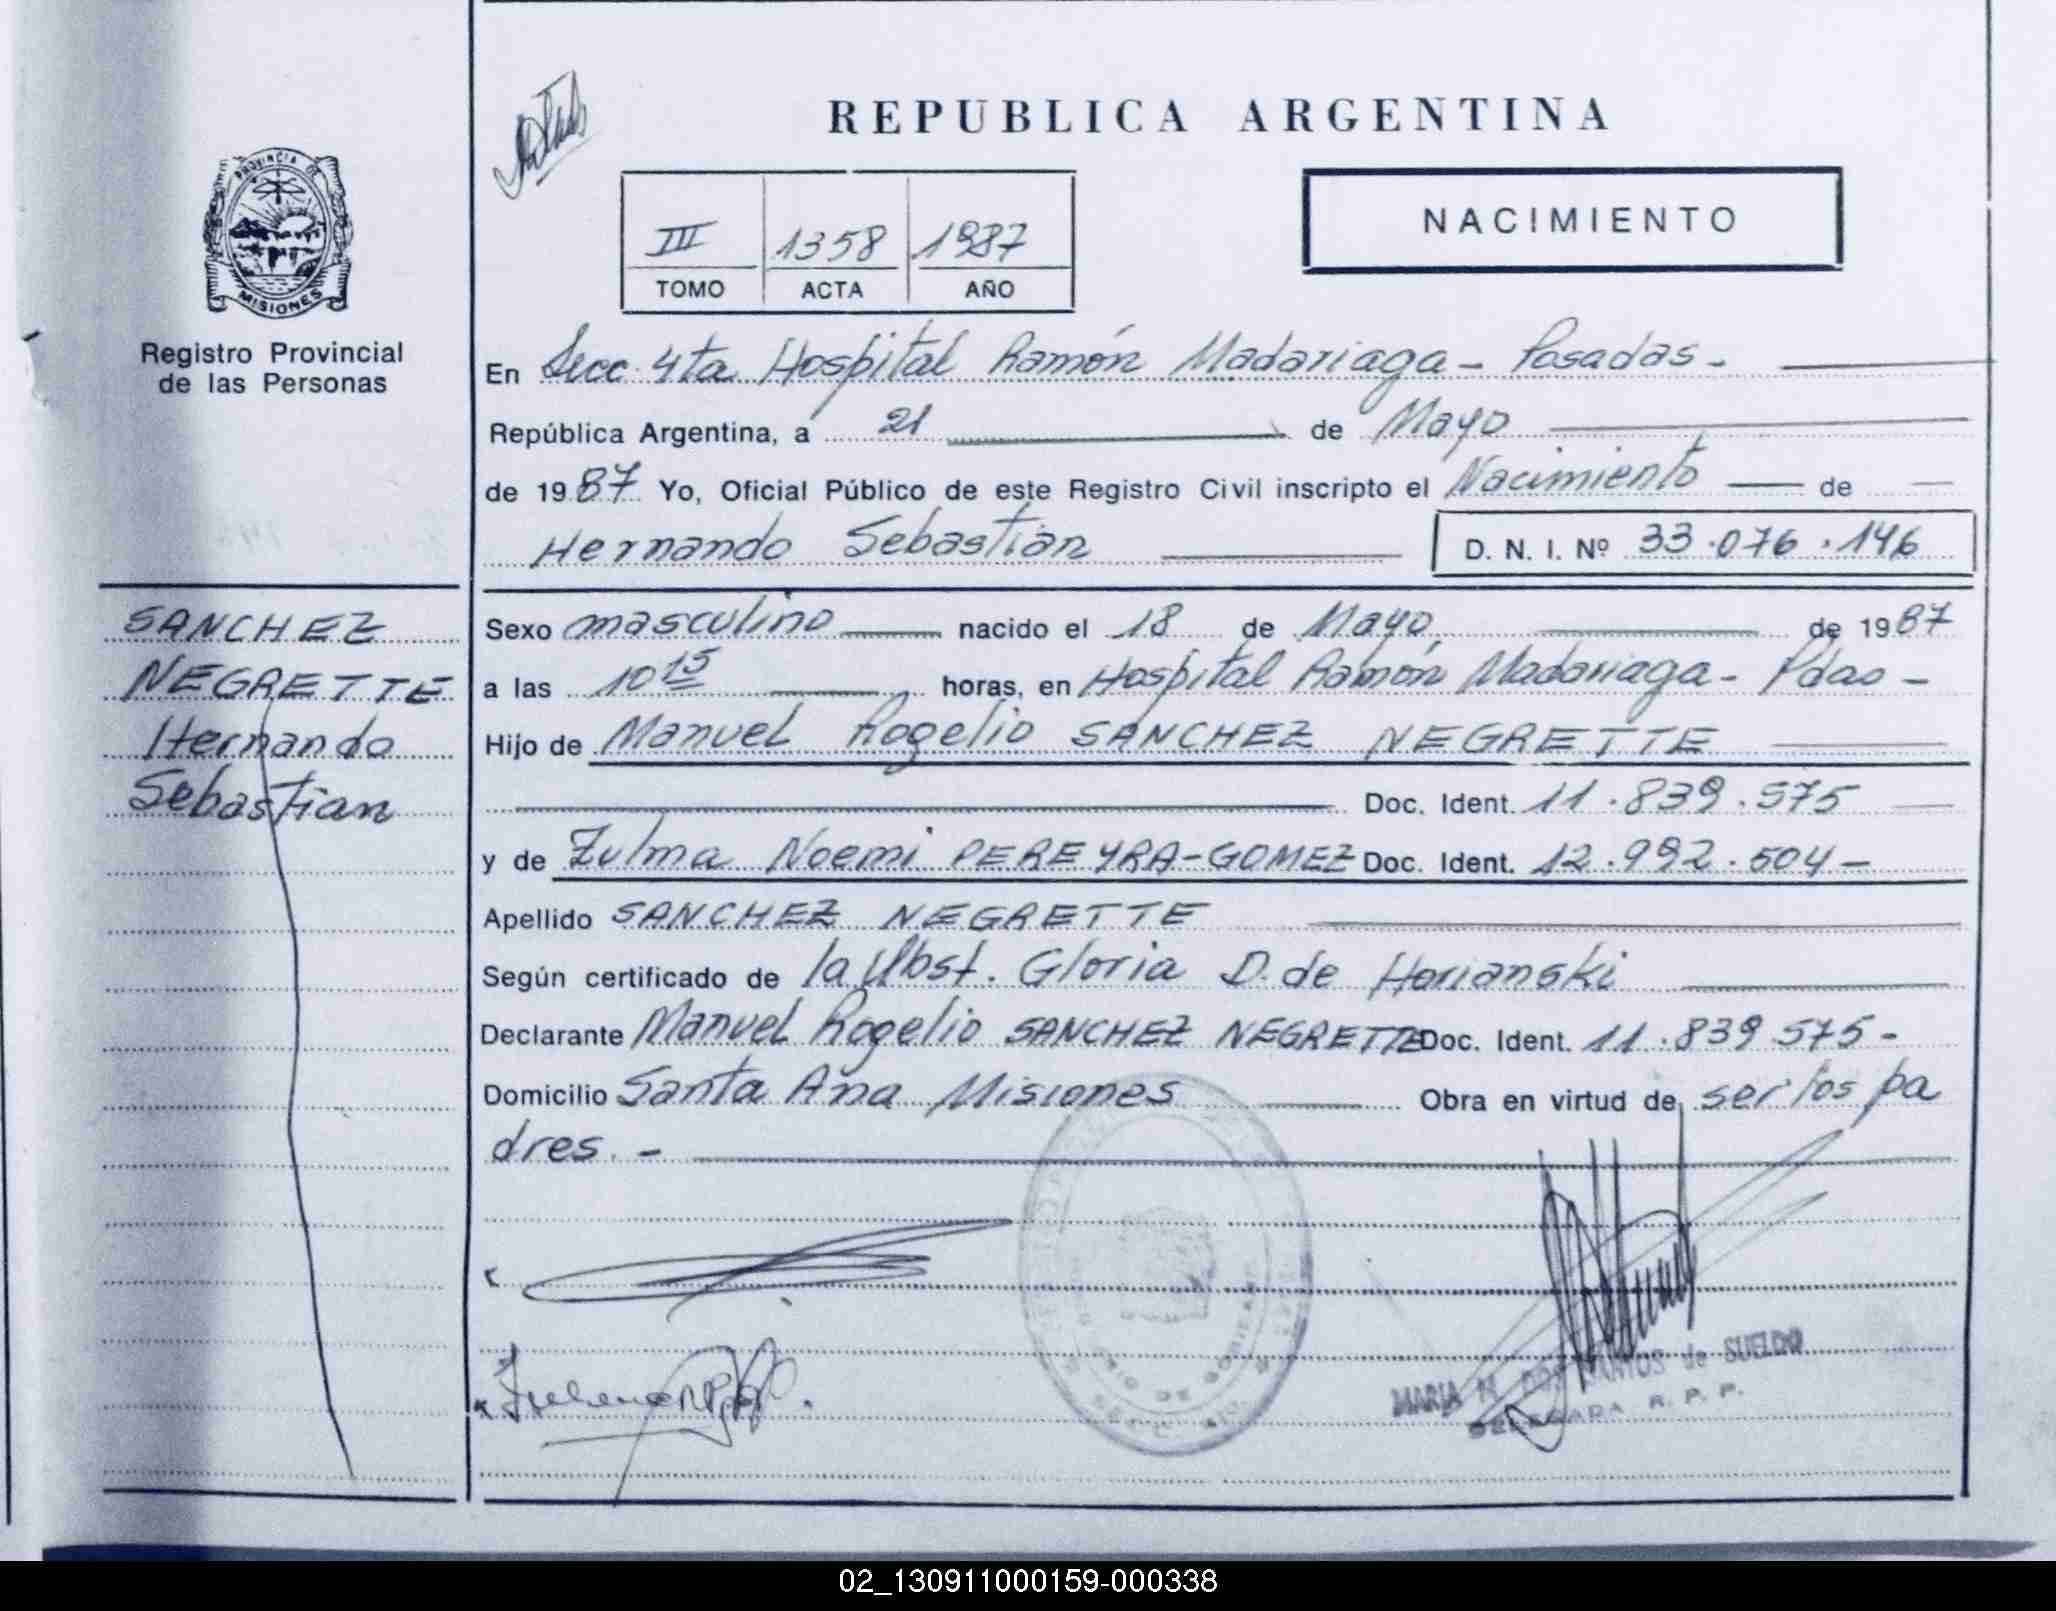 REPUBLICA ARGENTINA
PROVINCIA DE
MISIONES
Registro Provincial
de las Personas
III 1358 1987
TOMO ACTA AÑO
NACIMIENTO
En Secc. 4ta Hospital Ramón Madariaga - Posadas -
República Argentina, a 21 de Mayo
de 1987 Yo, Oficial Público de este Registro Civil inscripto el Nacimiento de
Hernando Sebastián D. N. I. Nº 33.076.146
SANCHEZ
NEGRETTE
Hernando
Sebastian
Sexo masculino nacido el 18 de Mayo de 1987
a las 10 15 horas, en Hospital Ramón Madariaga - Pdas -
Hijo de Manuel Rogelio SANCHEZ NEGRETTE
Doc. Ident. 11.839.575
y de Zulma Noemi PEREYRA-GOMEZ Doc. Ident. 12.992.504 -
Apellido SANCHEZ NEGRETTE
Según certificado de la Obst. Gloria D. de Horianski
Declarante Manuel Rogelio SANCHEZ NEGRETTE Doc. Ident. 11.839.575 -
Domicilio Santa Ana Misiones Obra en virtud de ser los pa
dres. -
MARIA M. DOS SANTOS de SUELDO
DELEGADA R. P. P.
02_130911000159-000338